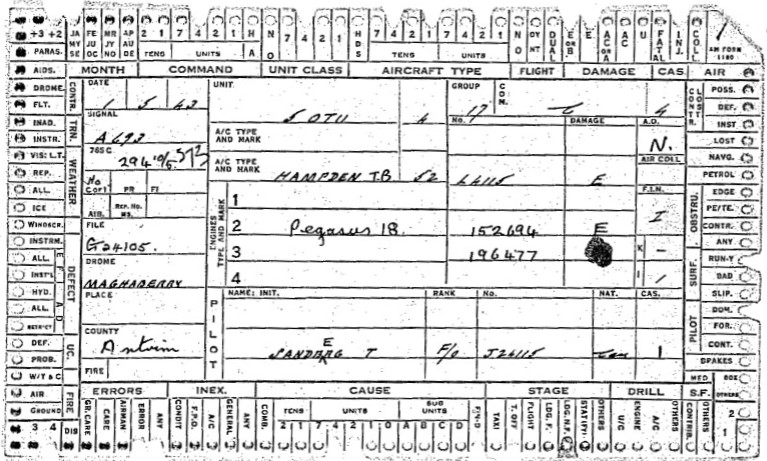 +3 +2 JA MY SE FE JU OC MR JY NO AP AU DE 2 1 7 4 2 1 H A N O 7 4 2 1 H D S 7 4 2 1 7 4 2 1 N O DY NT DUAL E OR B E E AC OR A AC U FATAL INJ. COLL.
TENS UNITS TENS UNITS AM FORM 1180
PARAS. MONTH COMMAND UNIT CLASS AIRCRAFT TYPE FLIGHT DAMAGE CAS. AIR
AIDS. CONTR. DATE UNIT GROUP COM. CONTR. LOST POSS.
DROME. 1 5 43 5 OTU 17 4 DEF.
FLT. SIGNAL No. DAMAGE A.D. INST
INAD. TRN. A693 A/C TYPE AND MARK N. LOST
INSTR. 765 C AIR COLL NAVG.
VIS: L.T. WEATHER A/C TYPE AND MARK HAMPDEN TB 52 L4115 E PETROL
REP. No COPY PR FI F.I.N. EDGE
ALL. 1 I OBSTRU. PE/TE.
ICE AIB. REP. No. ENGINES TYPE AND MARK 2 Pegasus 18. 152694 E CONTR.
WINDSCR. FILE K - ANY
INSTRM. G24105. 3 196477 SURF. RUN-Y
ALL. DEFECT DROME I 1 BAD
INST'L MAGHABERRY 4 SLIP.
HYD. PLACE PILOT NAME: INIT. RANK No. NAT. CAS. PILOT DOM.
ALL. FOR.
COUNTY CONT.
DEF. UC. Antrim SANDBERG T F/O J26115 Can 1 BRAKES
PROB. FIRE MED BOX
W/T & C
AIR FIRE ERRORS INEX. CAUSE STAGE DRILL S.F. OTHERS
GROUND. GR. CARE CARE AIRMAN ERROR ANY CONDIT F.P.O. A/C GENERAL ANY COMB. TENS UNITS SUB UNITS TAXI T. OFF FLIGHT LDG. F. LDG. N.F. STATIL'RY OTHERS U/C ENGINE A/C OTHERS CONTRIB. OTHERS 2
3 4 DIS 2 1 7 4 2 1 0 A B C D 1